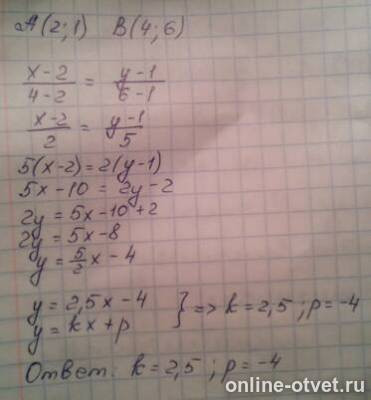 A(2;1) B(4;6)
x-2/4-2 = y-1/6-1
x-2/2 = y-1/5
5(x-2)=2(y-1)
5x-10 = 2y-2
2y = 5x-10+2
2y = 5x-8
y = 5/2 x - 4
y = 2,5x-4 } => k=2,5 ; p=-4
y = kx+p
Ответ: k=2,5 ; p=-4
online-otvet.ru